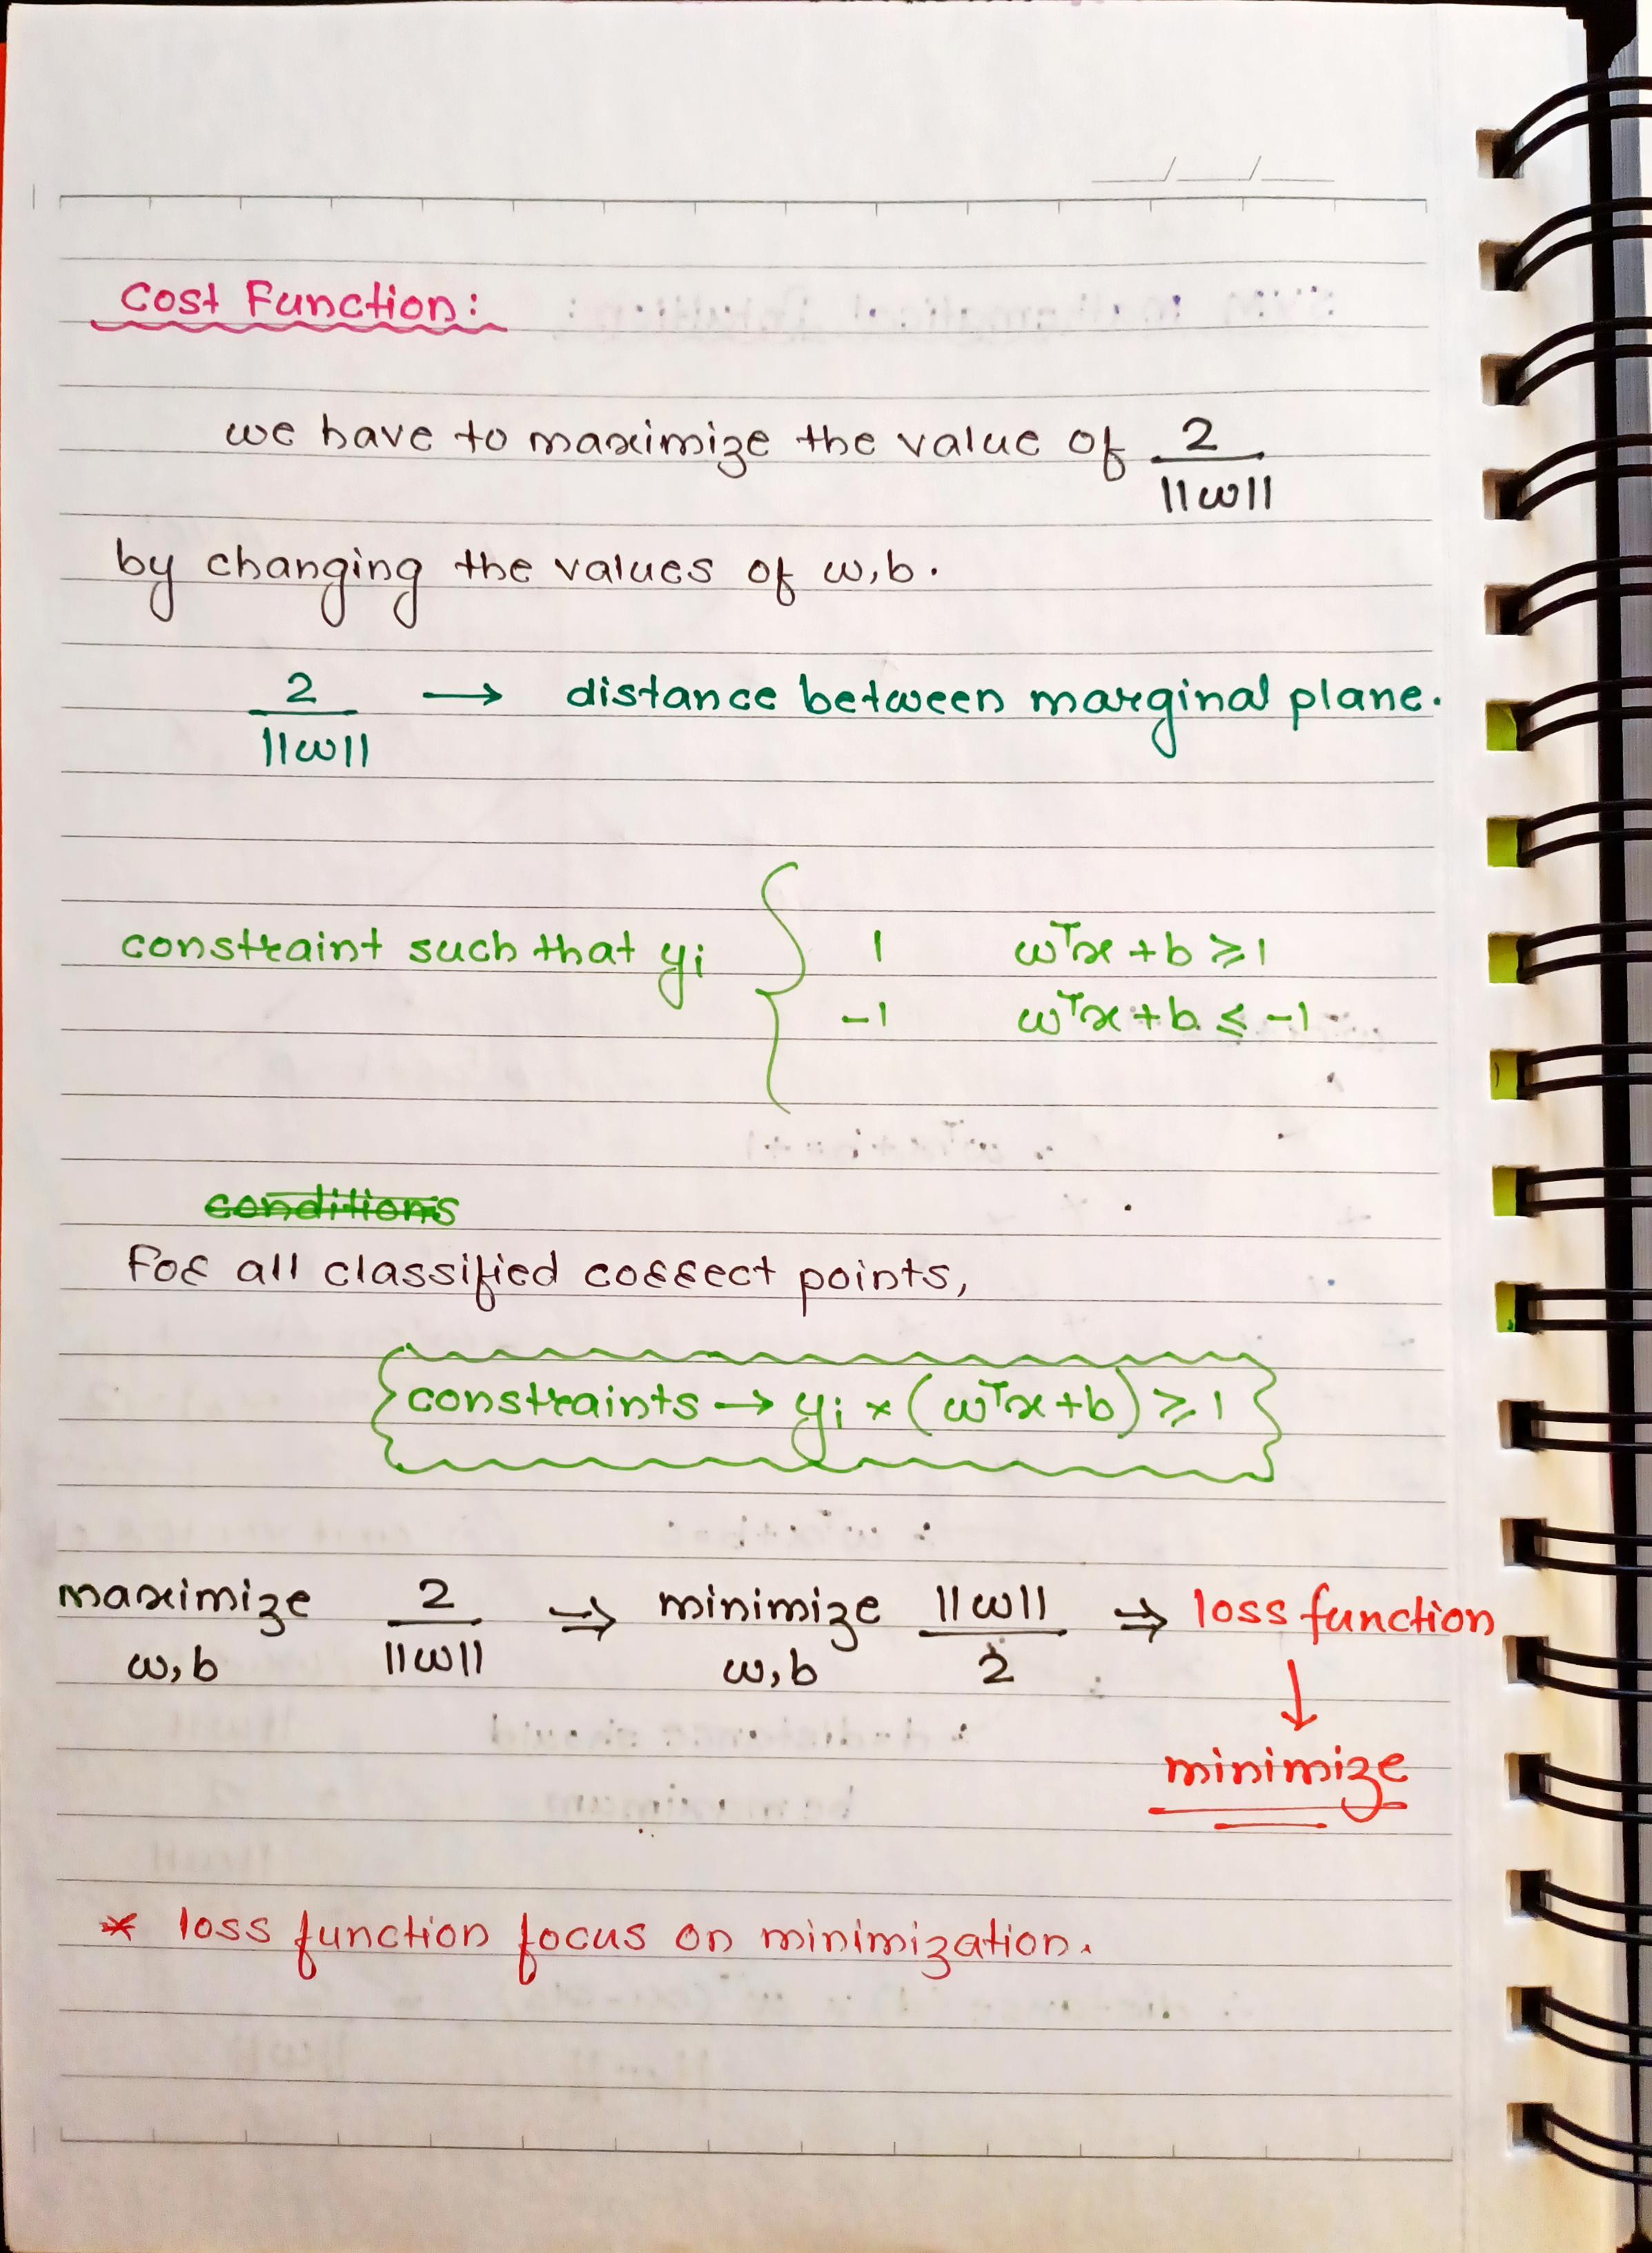 Cost Function:
we have to maximize the value of 2/||w||
by changing the values of w,b.
2/||w|| → distance between marginal plane.
constraint such that yi { 1 wᵀx + b ≥ 1
-1 wᵀx + b ≤ -1
conditions
For all classified correct points,
constraints → yi * (wᵀx + b) ≥ 1
maximize w,b 2/||w|| ⇒ minimize w,b ||w||/2 ⇒ loss function
↓
minimize
* loss function focus on minimization.